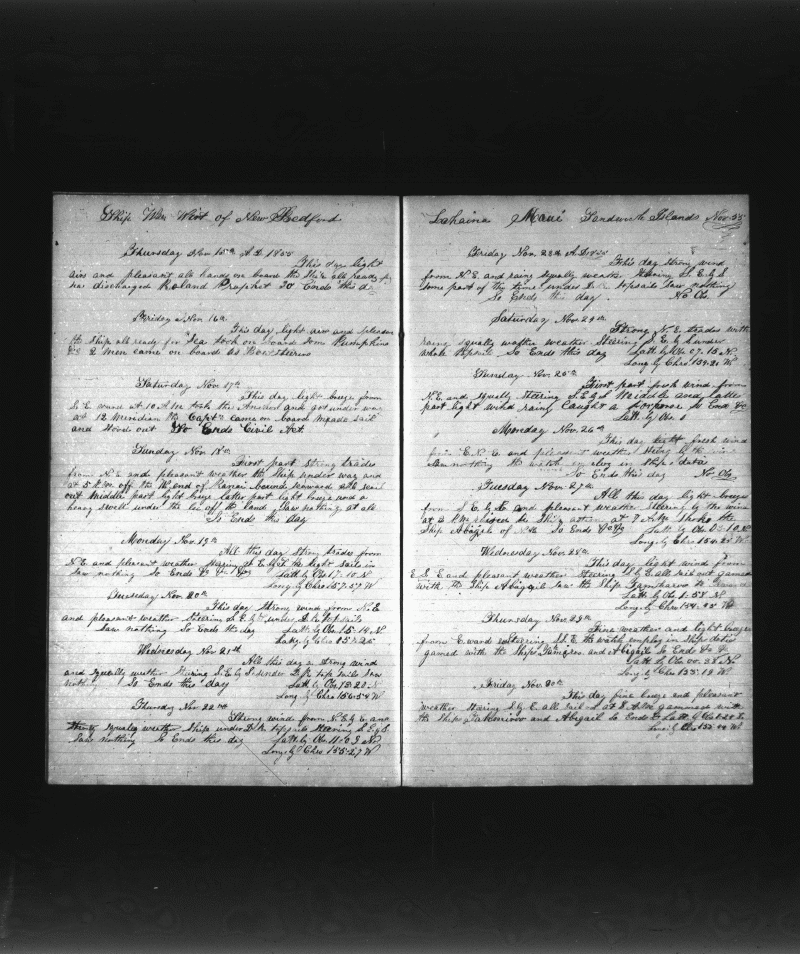 Ship Wm Wirt of New Bedford
Thursday Nov 15th A.D. 1855
This day light
airs and pleasant all hands on board the Ship all ready for
sea discharged Roland Prophet So Ends this d
Friday Nov. 16th
This day light airs and pleasant
the Ship all ready for Sea took on board some Pumpkins
2 Men came on board as Boatsteerers
Saturday Nov 17th
This day light breeze from
S. E. and at 10 A.M. took the Anchor and got under way
at 12 Meridian the Captn came on board made sail
and stood out So Ends Civil Act
Sunday Nov 18th
First part strong trades
from N. E. and pleasant weather the Ship under way and
at 5 P.M. off the W. end of Ranai bound seaward all sail
out Middle part light breeze latter part light breeze and a
heavy swell under the lee of the land Saw nothing at all
So Ends this day
Monday Nov 19th
All this day strong trades from
N. E. and pleasant weather Stearing S. E. by S. the light sails in
Saw nothing So Ends Latt. by Obs 17-10 N
Long. by Chro 157-57 W
Tuesday Nov. 20th
This day strong wind from N. E.
and pleasant weather Stearing S. E. by S. under topsails
Saw nothing So Ends this day Latt. by Obs 15-14 N
Long. by Chro 157-25
Wednesday Nov 21st
All this day a strong wind
and squally weather Stearing S. E. by S. under D. R. top sails Saw
nothing So Ends this day Latt. by Obs 13-20 N
Long. by Chro 156-54 W
Thursday Nov. 22nd
Strong wind from N. E. by E. and
squaly weather Ship under D. R. topsails Stearing S. E. by S.
Saw nothing So Ends this day Latt. by Obs. 11-03 N
Long. by Chro 155-27 W
Lahaina Maui Sandwich Islands Nov. 55
Friday Nov. 23d A.D. 1855
This day strong wind
from N. E. and rainy squally weather Stearing S. E. by S.
some part of the time under D. R. topsails Saw nothing
So Ends this day. No Obs.
Saturday Nov. 24th
Strong N. E. trades with
rainy squally weather Stearing S. E. by S. under
whole topsails So Ends this day Latt. by Obs 07.15 N
Long. by Chro 154.20 W
Sunday Nov. 25th
First part fresh wind from
N. E. and squally Stearing S. E. by S. Middle and latter
part light wind rainy Caught a Porpoise So End
Latt. by Obs
Monday Nov. 26th
This day fresh wind
from E. N. E. and pleasant weather Stearing by the wind
Saw nothing the watch employ in Ships duties
So Ends this day No Obs
Tuesday Nov. 27th
All this day light breeze
from S. E. by E. and pleasant weather Stearing by the wind
at 2 P.M. at 7 A.M. Spoke the
Ship Abigail of N. B. So Ends Latt. by Obs
Long. by Chro 154-25 W
Wednesday Nov. 28th
This day light wind from
E. S. E. and pleasant weather Stearing all sail out gamed
with the Ship Abigail Saw the Ship
Latt. by Obs 1.54 N
Long. by Chro 154.35 W
Thursday Nov. 29th
Fine weather and light breeze
from E.ward Stearing S. E. the watch employ in Ships duties
gamed with the Ships and Abigail So Ends
Latt. by Obs. 00.28 N
Long. by Chro 153.19 W
Friday Nov. 30th
This day fine breeze and pleasant
weather Stearing S. by E. all sail at 8 A.M. gammed with
the Ships and Abigail So Ends Latt. by Obs 1.20 S
Long. by Chro W